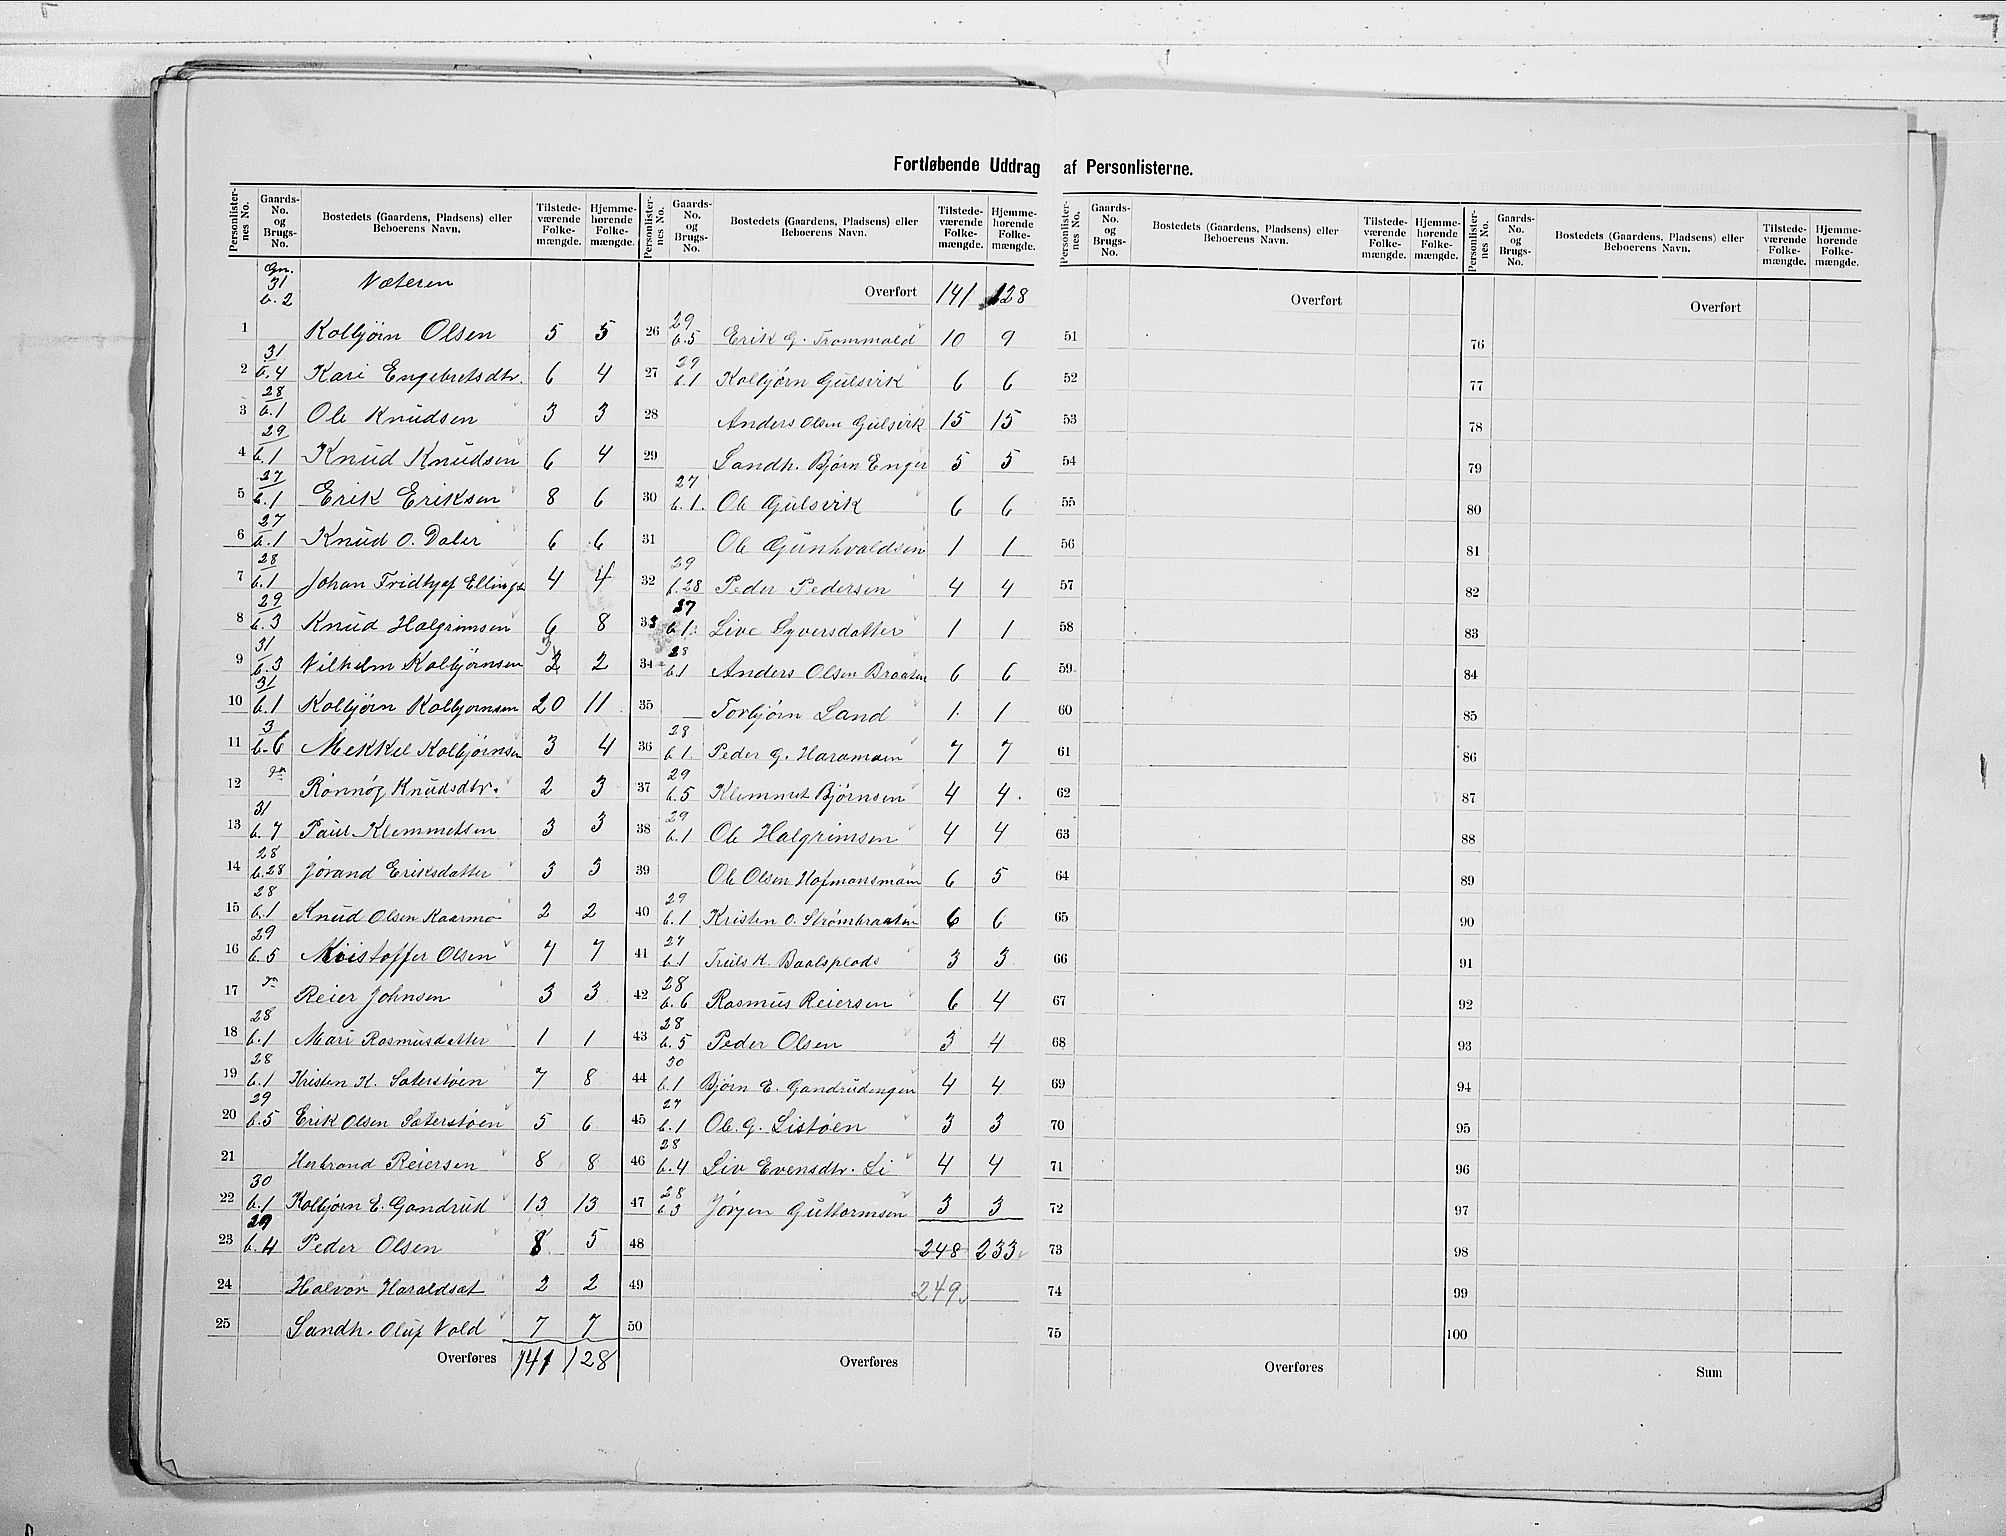 Fortløbende Uddrag af Personlisterne.
Personlisternes No. Gaards-No. og Brugs-No. Bostedets (Gaardens, Pladsens) eller Beboerens Navn. Tilstedeværende Folkemængde. Hjemmehørende Folkemængde.
Personlisternes No. Gaards-No. og Brugs-No. Bostedets (Gaardens, Pladsens) eller Beboerens Navn. Tilstedeværende Folkemængde. Hjemmehørende Folkemængde.
Personlisternes No. Gaards-No. og Brugs-No. Bostedets (Gaardens, Pladsens) eller Beboerens Navn. Tilstedeværende Folkemængde. Hjemmehørende Folkemængde.
Personlisternes No. Gaards-No. og Brugs-No. Bostedets (Gaardens, Pladsens) eller Beboerens Navn. Tilstedeværende Folkemængde. Hjemmehørende Folkemængde.
Gn. 31 b. 2 Næteren
1 Kolbjørn Olsen 5 5
2 31 b.4 Kari Engebretsdtr. 6 4
3 28 b.1 Ole Knudsen 3 3
4 29 b.1 Knud Knudsen 6 4
5 27 b.1 Erik Eriksen 8 6
6 27 b.1 Knud O. Daler 6 6
7 28 b.1 Johan Fridtjof Ellings 4 4
8 29 b.3 Knud Halgrimsen 6 8
9 31 b.3 Vilhelm Kolbjørnsen 3 2 2
10 31 b.1 Kolbjørn Kolbjørnsen 20 11
11 3 b.6 Mekkel Kolbjørnsen 3 4
12 gn Rønnøg Knudsdtr. 2 3
13 31 b.7 Paul Klemmetsen 3 3
14 28 b.28 Jørand Eriksdatter 3 3
15 28 b.1 Knud Olsen Kaarmo 2 2
16 29 b.5 Kristoffer Olsen 7 7
17 gn Reier Johnsen 3 3
18 28 b.1 Mari Rasmusdatter 1 1
19 28 b.1 Kristen K. Sæterstøen 7 8
20 29 b.5 Erik Olsen Sæterstøen 5 6
21 Herbrand Reiersen 8 8
22 30 b.1 Kolbjørn E. Gandrud 13 13
23 29 b.4 Peder Olsen 8 5
24 Halvor Haraldset 2 2
25 Landh. Oluf Vold 7 7
Overføres 141 128
Overført 141 128
26 29 b.5 Erik G. Trommald 10 9
27 29 b.1 Kolbjørn Gulsvik 6 6
28 Anders Olsen Gulsvik 15 15
29 Landh. Bjørn Enger 5 5
30 27 b.1. Ole Gulsvik 6 6
31 Ole Gunhvaldsen 1 1
32 29 b.28 Peder Pedersen 4 4
33 27 b.1. Live Syversdatter 1 1
34 28 b.1 Anders Olsen Braaten 6 6
35 Torbjørn Land 1. 1
36 28 b.1. Peder G. Haramoen 7 7
37 29 b.5 Klemmet Bjørnsen 4 4.
38 29 b.1 Ole Halgrimsen 4 4
39 Ole Olsen Hofmansmoen 6 5
40 29 b.1 Kristen O. Strømbraaten 6 6
41 27 b.1 Truls K. Baalsplads 3 3
42 28 b.6 Rasmus Reiersen 6 4
43 28 b.5 Peder Olsen 3 4
44 30 b.1 Bjørn E. Gandrudengen 4 4
45 27 b.1 Ole. G. Listøen 3 3
46 28 b.4 Liv Evensdtr. Li 4 4
47 28 b.3 Jørgen Guttormsen 3 3
48 248 233
49 249
50
Overføres
Overført
51
52
53
54
55
56
57
58
59
60
61
62
63
64
65
66
67
68
69
70
71
72
73
74
75
Overføres
Overført
76
77
78
79
80
81
82
83
84
85
86
87
88
89
90
91
92
93
94
95
96
97
98
99
100
Sum